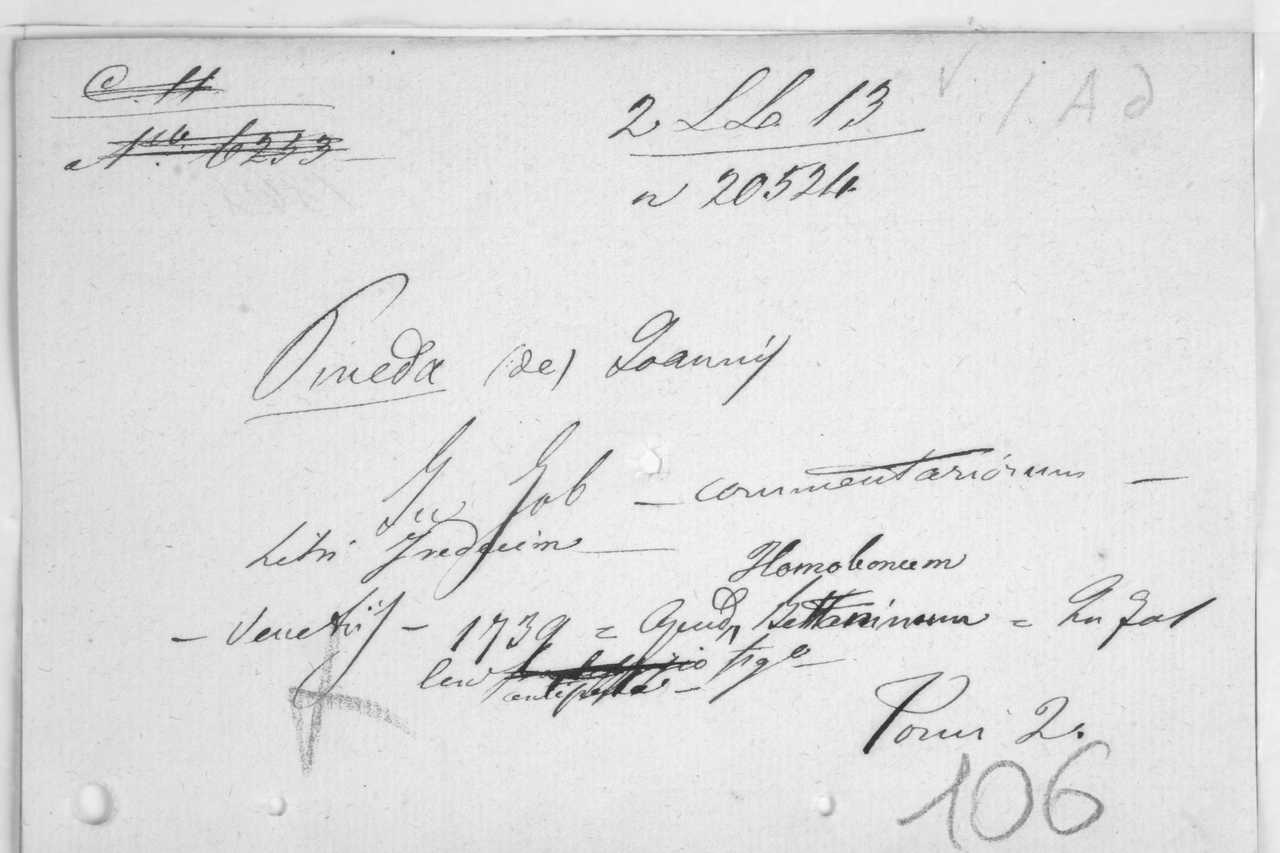 C. 11
N.ro 6253
2 LLa 13
n 20524
1 A d
Pineda (de) Joannis
In Job — commentariorum —
Libri Tredecim —
Homobonum
— Venetijs — 1739 = Apud Bettaninum = In fol
antiporta
Tomi 2.
106